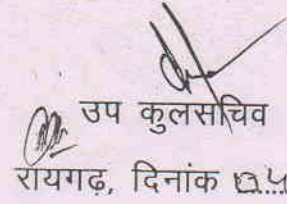 उप कुलसचिव
रायगढ़, दिनांक